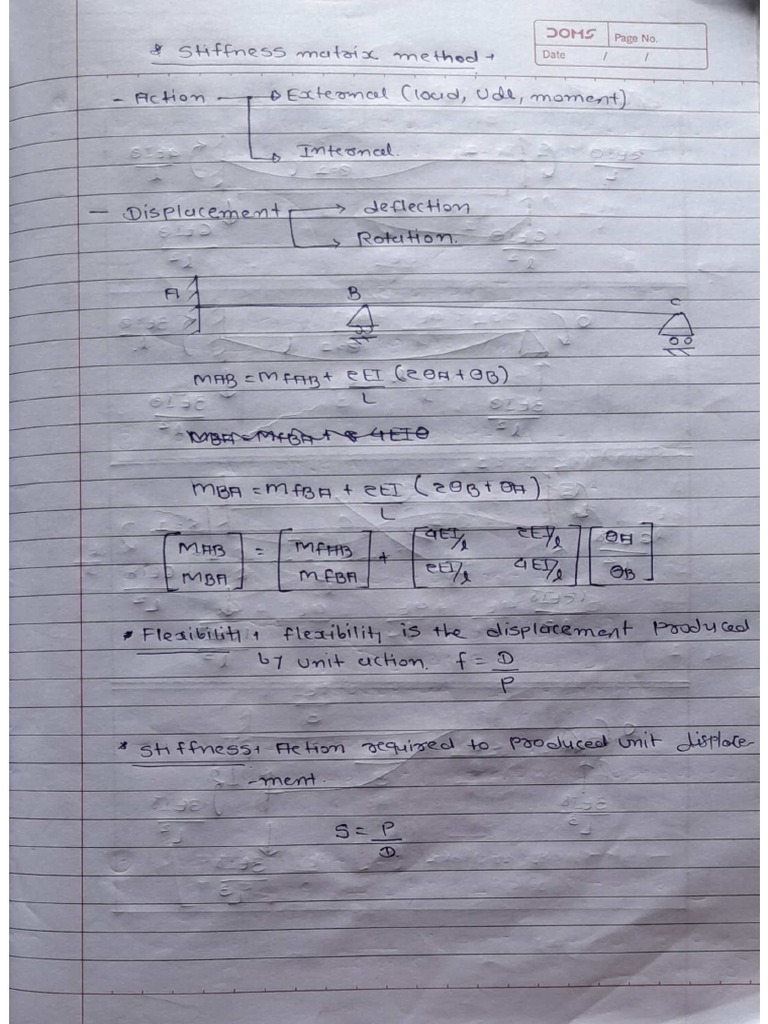 DOMS Page No.
Date / /
* Stiffness matrix method →
- Action → External (load, Udl, moment)
→ Internal.
- Displacement → deflection
→ Rotation.
A B C
MAB = MFAB + 2EI/L (2θA + θB)
MBA = MFBA + 4EIθ
MBA = MFBA + 2EI/L (2θB + θA)
[MAB MBA] = [MFAB MFBA] + [4EI/l 2EI/l 2EI/l 4EI/l] [θA θB]
* Flexibility → flexibility is the displacement produced
by unit action. f = D/P
* Stiffness → Action required to produced unit displace-
-ment.
S = P/D